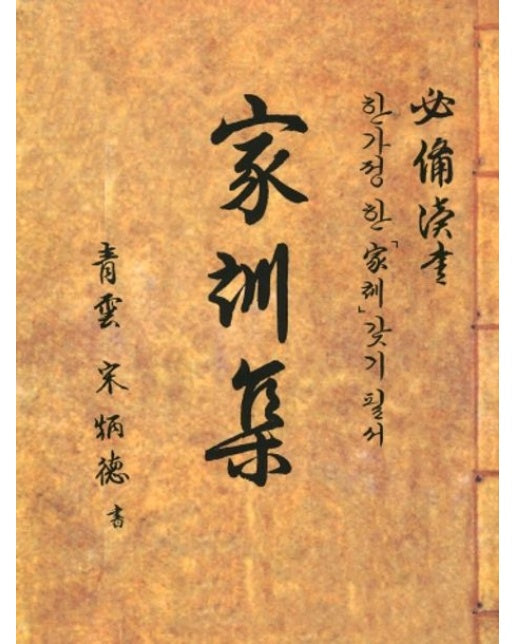 必備讀書
한가정 한「家訓」갖기 필서
家訓集
青雲 宋炳德 書